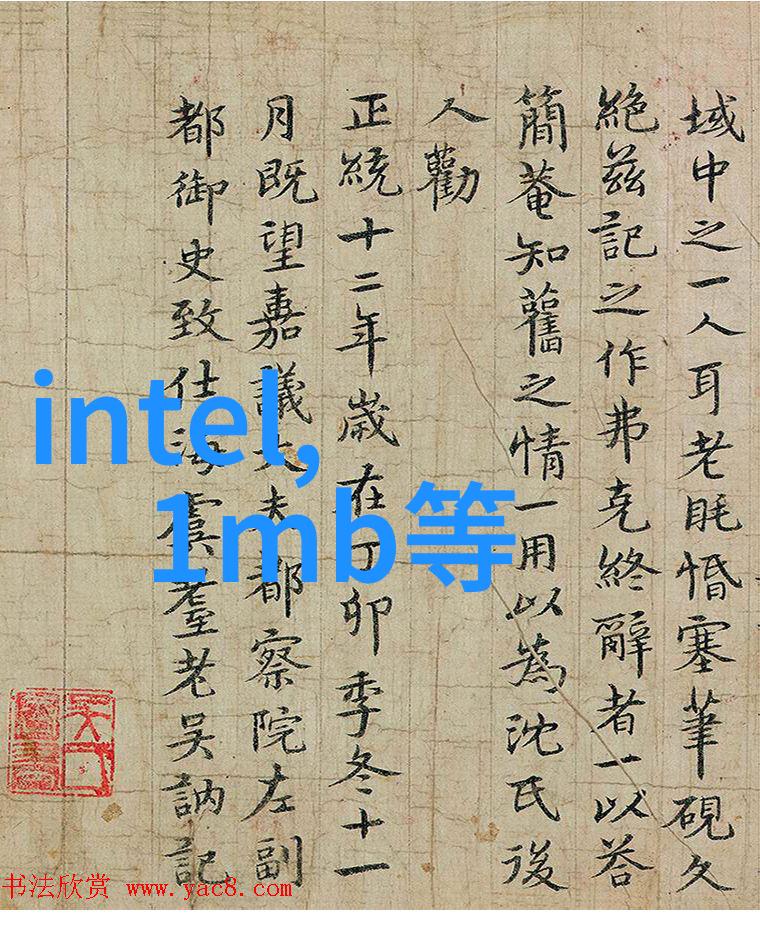 域中之一人耳老眊惛塞筆硯久
絶茲記之作弗克終辭者一以荅
簡菴知舊之情一用以為沈氏後
人勸
正統十二年歲在丁卯季冬十一
月既望嘉議大夫都察院左副
都御史致仕海虞耋老吳訥記
intel,
1mb等
书法欣赏 www.yac8.com